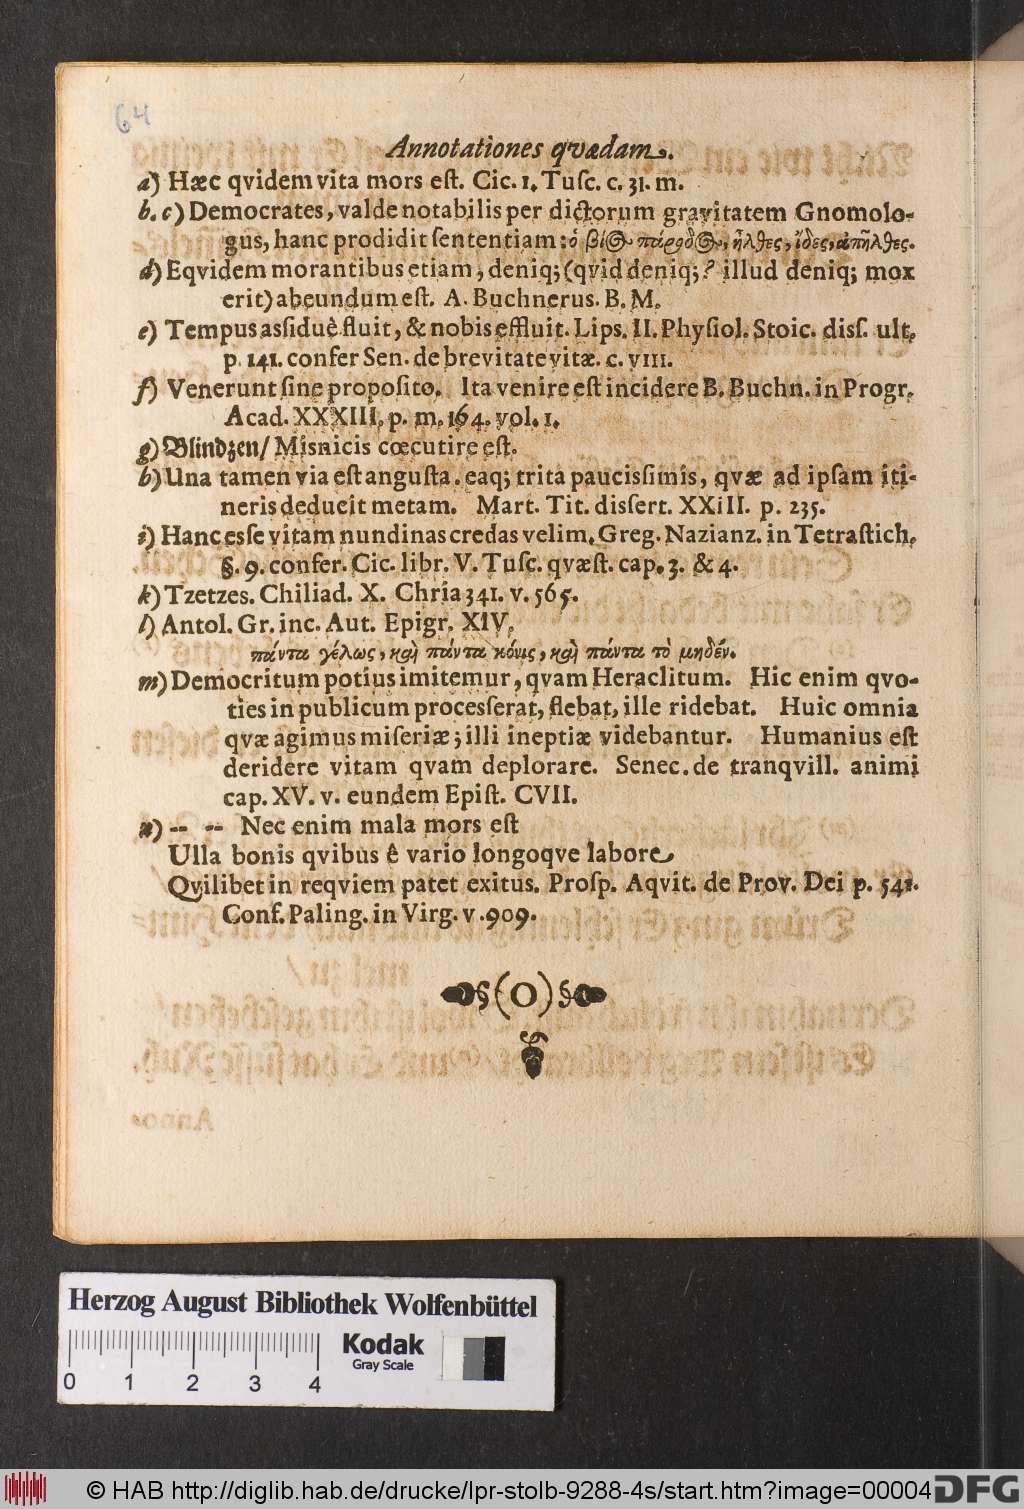 64
Annotationes qvædam.
a) Hæc qvidem vita mors eſt. Cic. 1. Tuſc. c. 31. m.
b. c) Democrates, valde notabilis per dictorum gravitatem Gnomolo-
gus, hanc prodidit ſententiam: ὁ βί@ πάροδ@, ἦλθες, ἴδες, ἀπῆλθες.
d) Eqvidem morantibus etiam, deniq; (qvid deniq;? illud deniq; mox
erit) abeundum eſt. A. Buchnerus. B. M.
e) Tempus aſſiduè fluit, & nobis effluit. Lips. II. Phyſiol. Stoic. diſſ. ult.
p. 141. confer Sen. de brevitate vitæ. c. VIII.
f) Venerunt ſine propoſito. Ita venire eſt incidere B. Buchn. in Progr.
Acad. XXXIII. p. m. 164. vol. 1.
g) Blindzen/ Miſnicis cœcutire eſt.
h) Una tamen via eſt anguſta. eaq; trita pauciſſimis, qvæ ad ipſam iti-
neris deducit metam. Mart. Tit. diſſert. XXiII. p. 235.
i) Hanc eſſe vitam nundinas credas velim. Greg. Nazianz. in Tetraſtich.
§. 9. confer. Cic. libr. V. Tuſc. qvæſt. cap. 3. & 4.
k) Tzetzes. Chiliad. X. Chria 341. v. 565.
l) Antol. Gr. inc. Aut. Epigr. XIV.
πάντα γέλως, καὶ πάντα κόνις, καὶ πάντα τὸ μηδέν.
m) Democritum potius imitemur, qvam Heraclitum. Hic enim qvo-
ties in publicum proceſſerat, flebat, ille ridebat. Huic omnia
qvæ agimus miſeriæ; illi ineptiæ videbantur. Humanius eſt
deridere vitam qvam deplorare. Senec. de tranqvill. animi
cap. XV. v. eundem Epiſt. CVII.
n) -- -- Nec enim mala mors eſt
Ulla bonis qvibus ê vario longoqve labore
Qvilibet in reqviem patet exitus. Proſp. Aqvit. de Prov. Dei p. 541.
Conf. Paling. in Virg. v. 909.
§(O)§
Herzog August Bibliothek Wolfenbüttel
Kodak
Gray Scale
0 1 2 3 4
© HAB http://diglib.hab.de/drucke/lpr-stolb-9288-4s/start.htm?image=00004
DFG